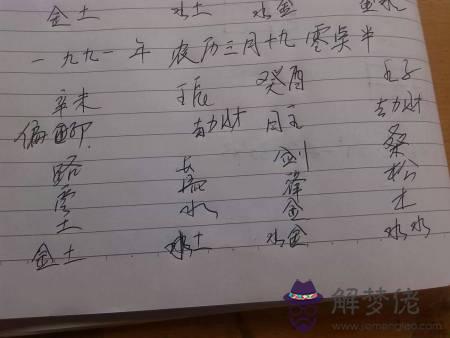 金土 水土 水金 金水
一九九一年 农历三月十九 零点半
辛未 壬辰 癸酉 壬子
偏印 劫财 日主 劫财
路 长 剑 桑
雩 流 锋 松
土 水 金 木
金土 水土 水金 水水
解梦佬
www.jiemenglao.com